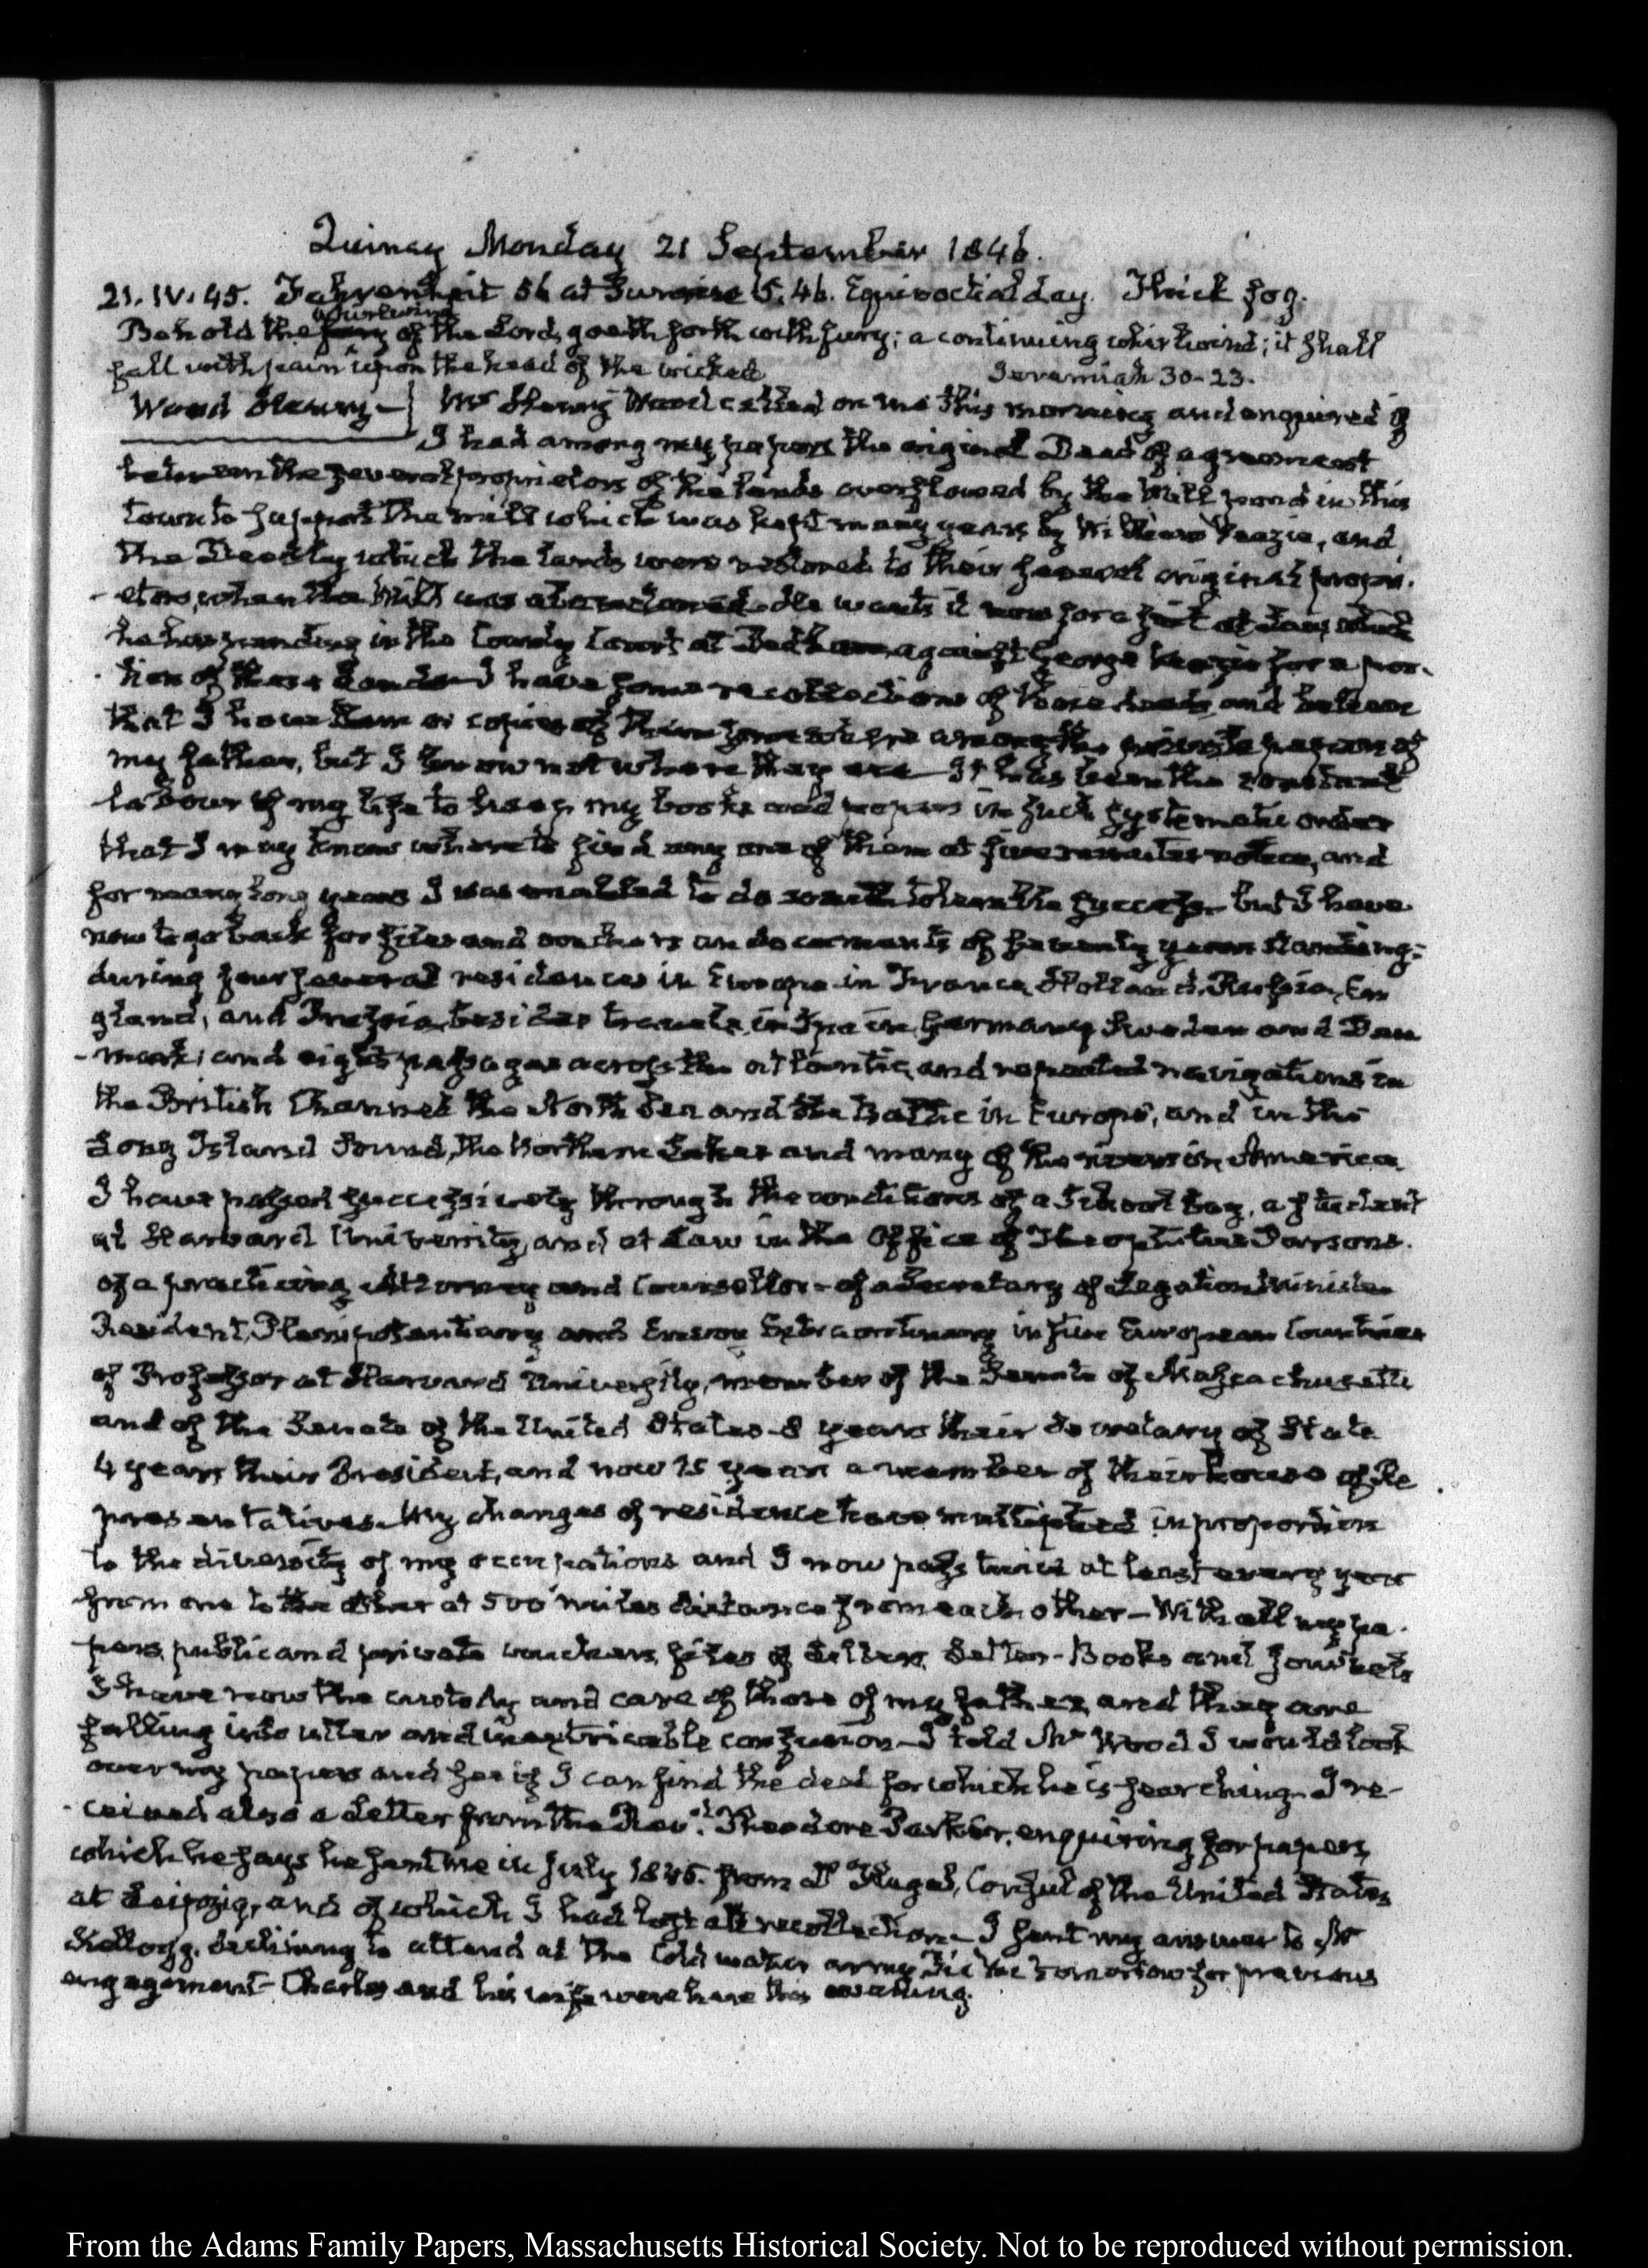 Quincy Monday 21 September 1846.
21. IV. 45. Fahrenheit 56 at Sunrise 5.46. Equinoctial day. Thick fog.
whirlwind
Behold the fury of the Lord, goeth forth with fury; a continuing whirlwind; it shall
fall with pain upon the head of the wicked Jeremiah 30-23.
Wood Henry— Mr Henry Wood called on me this morning and enquired if
I had among my papers the original Deed of agreement
between the several proprietors of the lands overflowed by the Mill pond in this
town to support the mill which was kept many years by William Veazie, and
the Deed by which the lands were restored to their several original propri-
-etors, when the Mill was abandoned. He wants it now for a suit at Law which
he has pending in the County Court at Dedham against George Veazie for a por-
-tion of these Lands—I have some recollections of those deeds and believe
that I have them or copies of them somewhere among the private papers of
my father, but I know not where they are—It has been the constant
labour of my life to keep my books and papers in such systematic order
that I may know where to find any one of them at five minutes notice, and
for many long years I was enabled to do so with tolerable success. but I have
now to go back for files and vouchers and documents of seventy years standing:
during four several residences in Europe in France, Holland, Russia, En
gland, and Prussia, besides travels in Spain, Germany Sweden and Den
-mark; and eight passages across the atlantic, and repeated navigations in
the British Channel the North Sea and the Baltic in Europe, and in the
Long Island Sound, the Northern Lakes and many of the rivers in America
I have passed successively through the conditions of a School boy, a student
at Harvard University, and at Law in the Office of Theophilus Parsons.
of a practicing Attorney and Counsellor—of a Secretary of Legation Minister
Resident, Plenipotentiary and Envoy Extraordinary in five European Countries
of Professor at Harvard University, member of the Senate of Massachusetts
and of the Senate of the United States—8 years their Secretary of State
4 years their President, and now 15 years a member of their House of Re
presentatives. My changes of residence have multiplied in proportion
to the diversity of my occupations and I now pass twice at least every year
from one to the other at 500 miles distance from each other—With all my pa-
pers, public and private vouchers, files of Letters, Letter-Books and Journals
I have now the custody and care of those of my father, and they are
falling into utter and inextricable confusion—I told Mr Wood I would look
over my papers and see if I can find the deed for which he is searching. I re-
-ceived also a Letter from the Revd. Theodore Parker, enquiring for papers,
which he says he sent me in July 1845. from Dr Flugel, Consul of the United States
at Leipzig, and of which I had lost all recollection—I sent my answer to Mr
Kellogg, declining to attend at the Cold water army to-morrow for previous
engagement—Charles and his wife were here this evening.
From the Adams Family Papers, Massachusetts Historical Society. Not to be reproduced without permission.